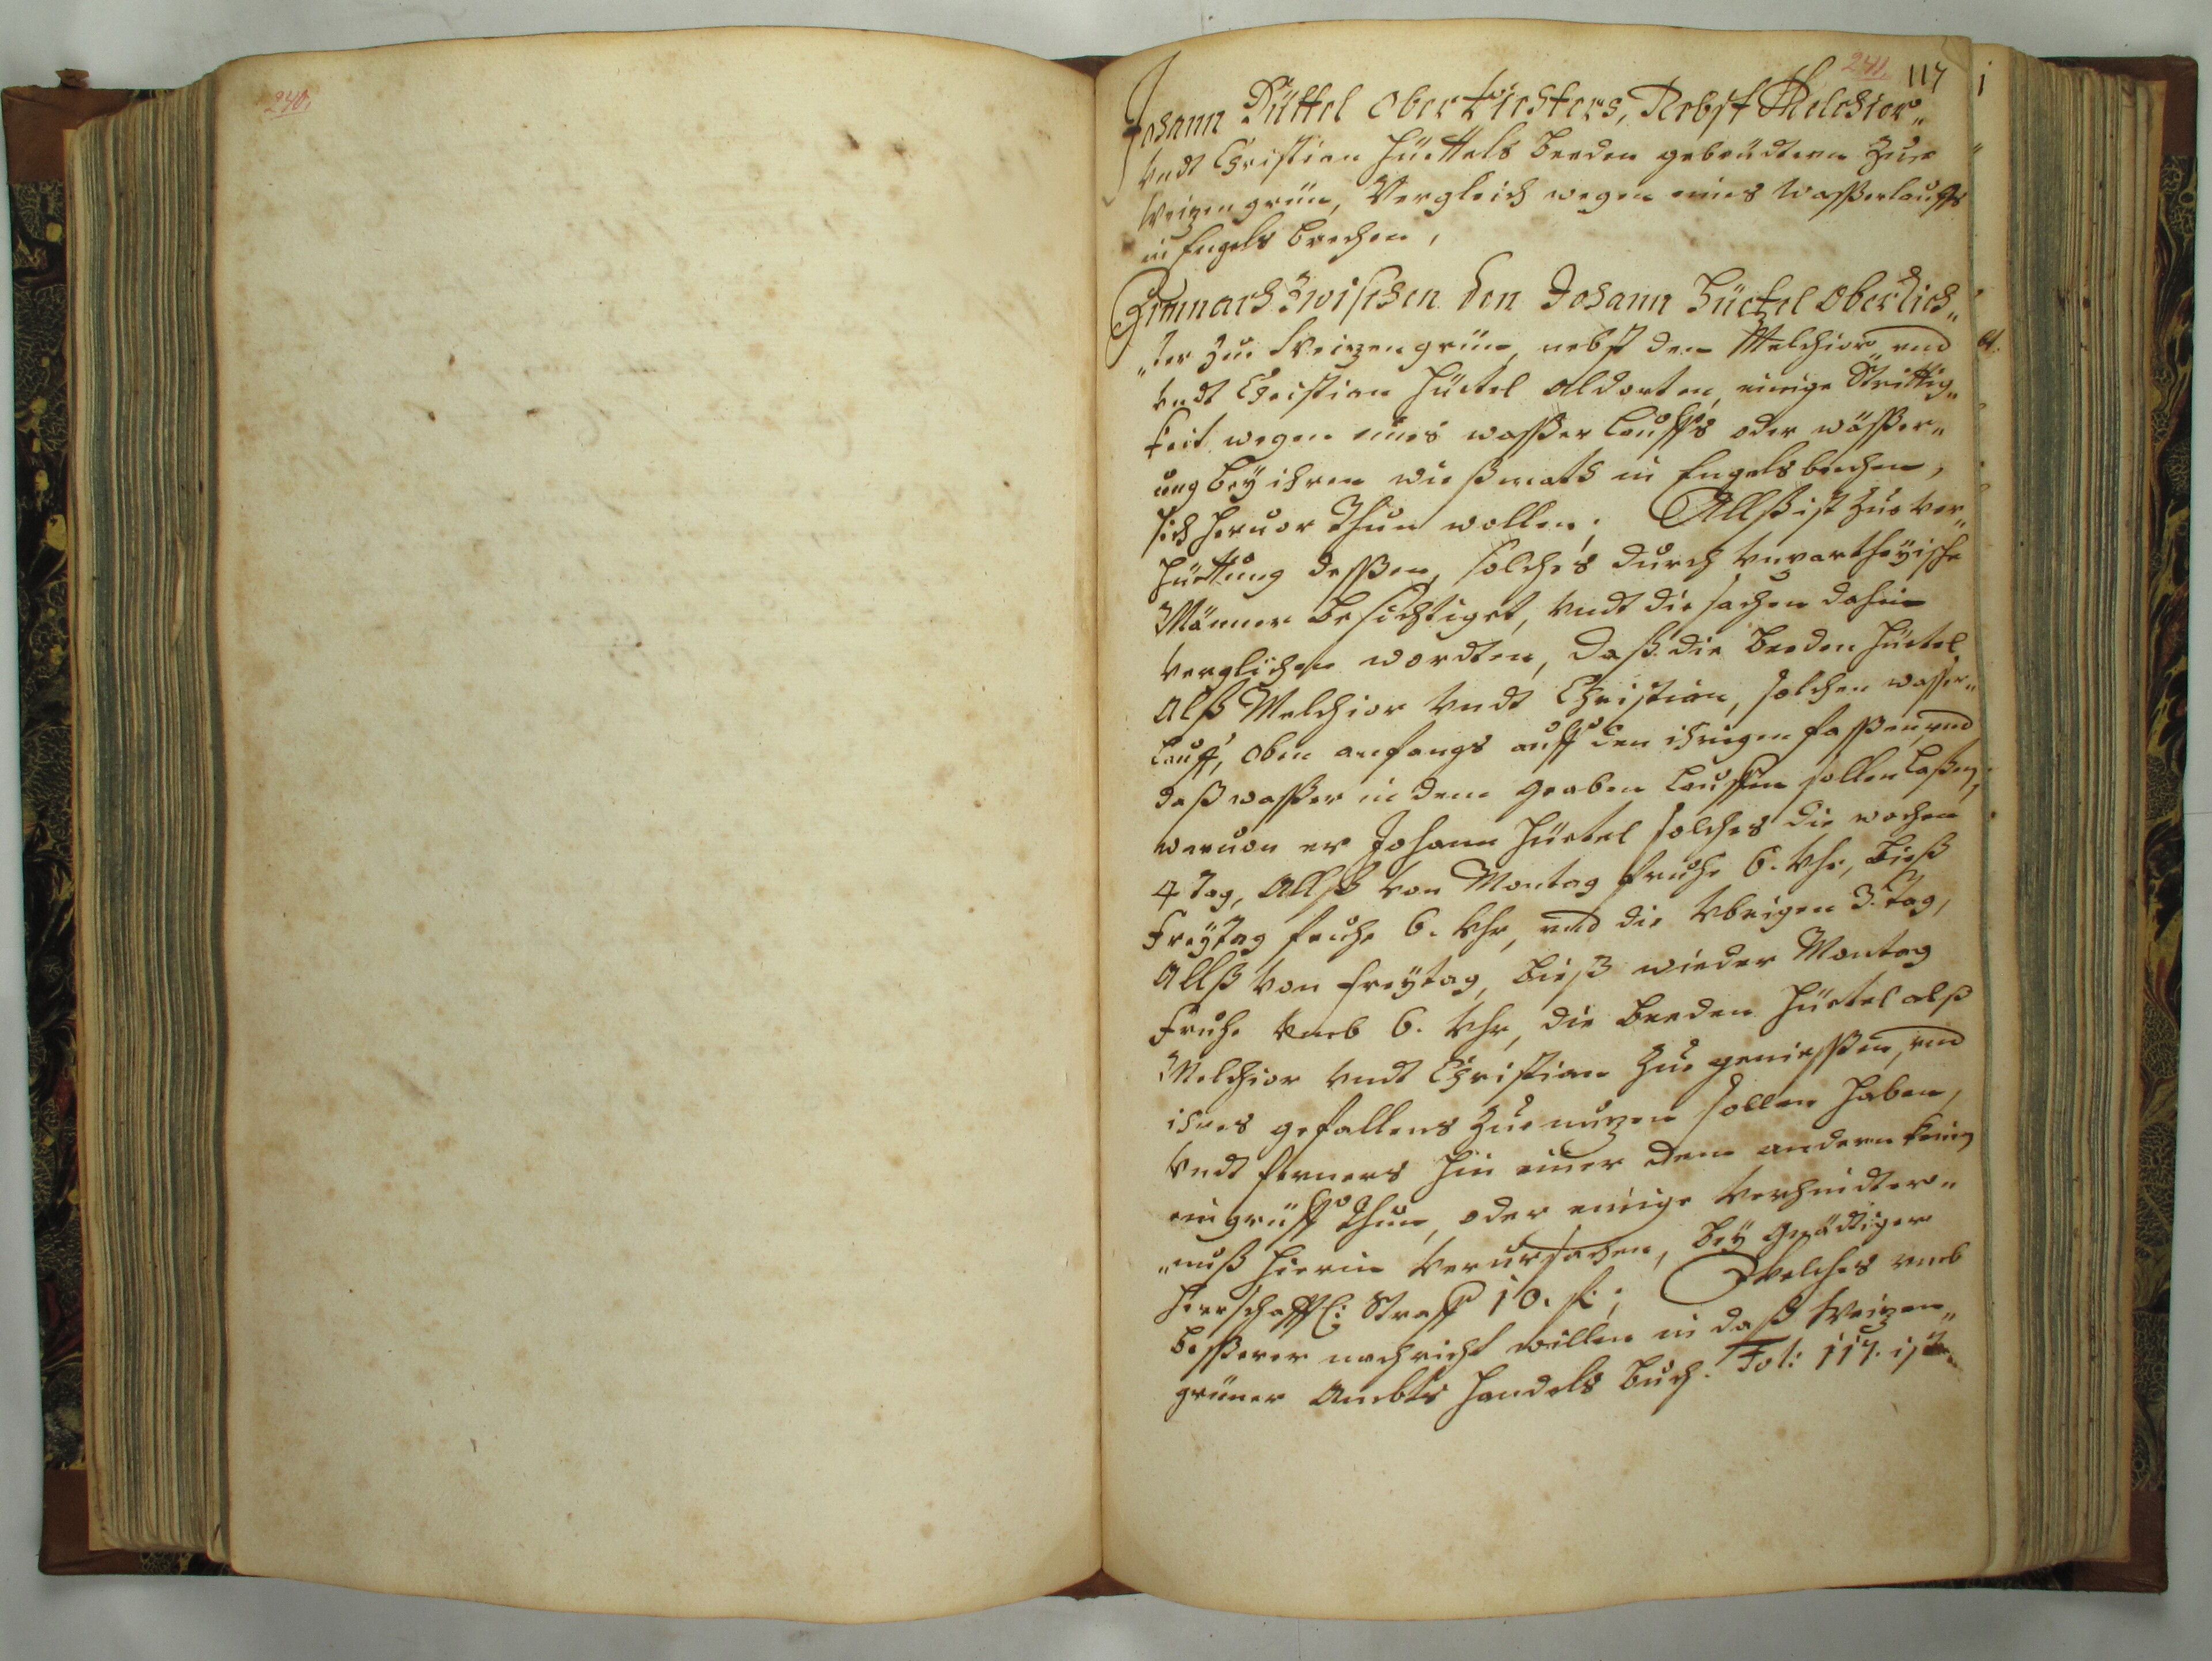 240.
241. 117
Johann Hüttel Oberrichters, Nebst Melchior„
Vndt Christian Hüettels beeden gebrüdtern Zue
Weizengrün, Vergleich wegen eines Wasserlauffs
in Engelsbachen,
Demnach Zwischen den Johann Hüettel Oberrich„
„ter Zue Weizengrün, nebst den Melchior vnd
Vndt Christian Hüetel aldorten, einige Strittig„
keit wegen eines wasser lauffs oder wässer„
ung bey ihren wießmath in Engelsbachen,
sich heruor Thun wollen; Allß ist Zue ver„
hüettung dessen, solches durch vnpartheyische
Männer besichtiget, Vndt die sachen dahin
verglichen wordten, daß die beeden Hüetel
Alß Melchior Vndt Christian, solchen wasser„
lauff, oben anfangs auff den ihrigen fassen, vnd
daß wasser in dem graben lauffen sollen lassen,
wouon er Johann Hüetel solches die wochen
4 Tag, Allß Von Montag fruhe 6. Vhr, bieß
Freytag fruhe 6. Vhr, vnd die Vbrigen 3. Tag,
Allß Von Freytag, bieß wieder Montag
Fruhe Vmb 6. Vhr, die beeden Hüetel alß
Melchior Vndt Christian Zue geniessen, vnd
ihres gefallens Zue nuzen sollen haben,
Vndt ferners hin einer dem andern keinen
eingrüff Thun, oder einige Verhindter„
„nuß hierin Verursachen, bey gnädiger
Herrschafftl: Straff 10. fl.; Welches vmb
besserer nachricht willen in daß Weizen„
grüner Ambts Handels buch. Fol: 117. ist